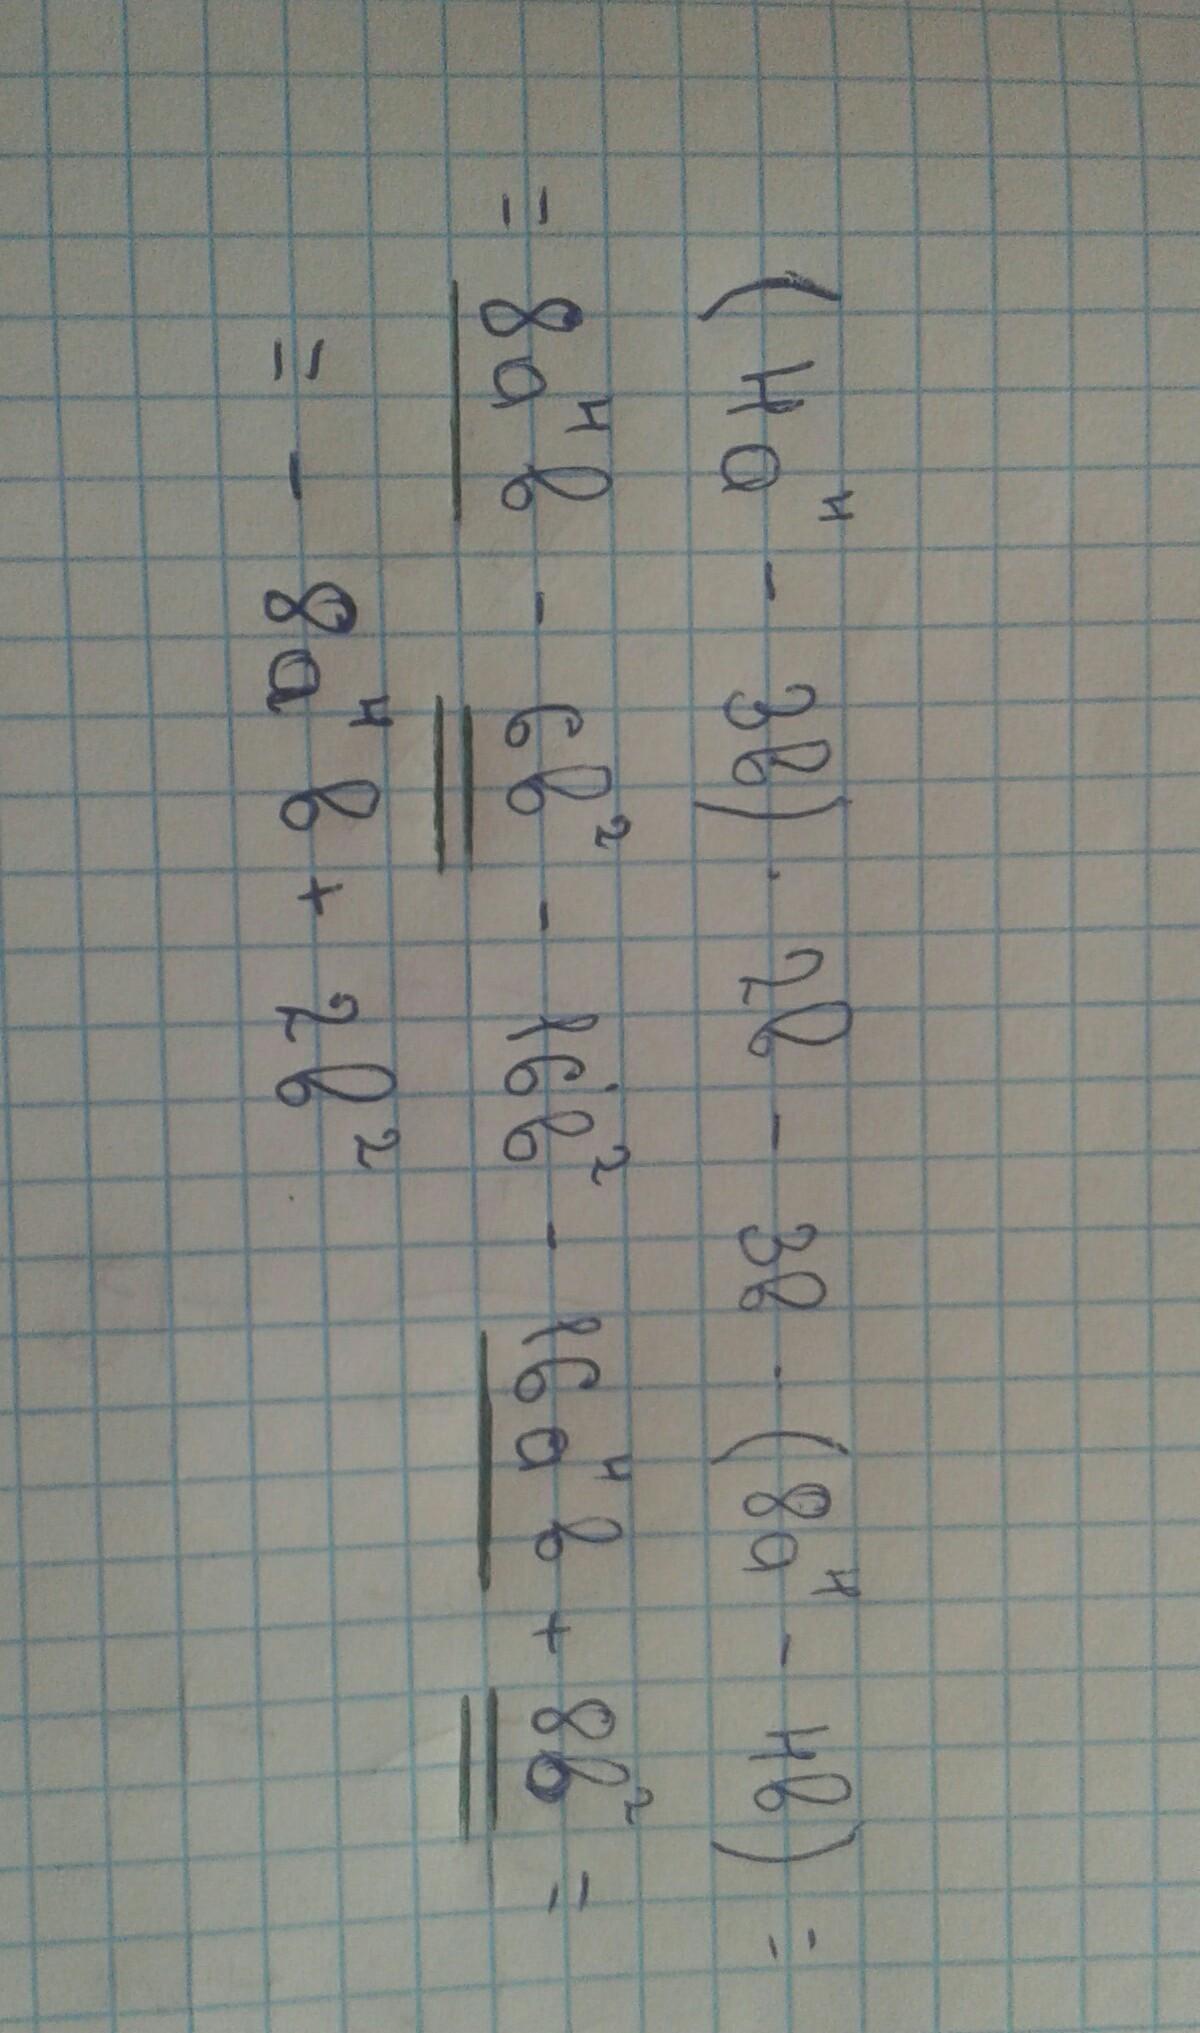 (4a⁴ - 3b) · 2b - 3b · (8a⁴ - 4b) =
= 8a⁴b - 6b² - 16b² - 16a⁴b + 8b² =
= - 8a⁴b + 2b²